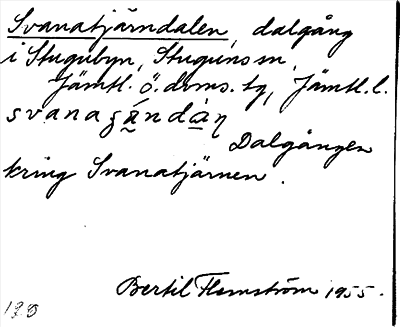 Svanatjärndalen, dalgång
i Stugubyn, Stuguns sn,
Jämtl. ö. doms. tg, Jämtl. l.
Dalgången
kring Svanatjärnen.
Bertil Flemström 1955.